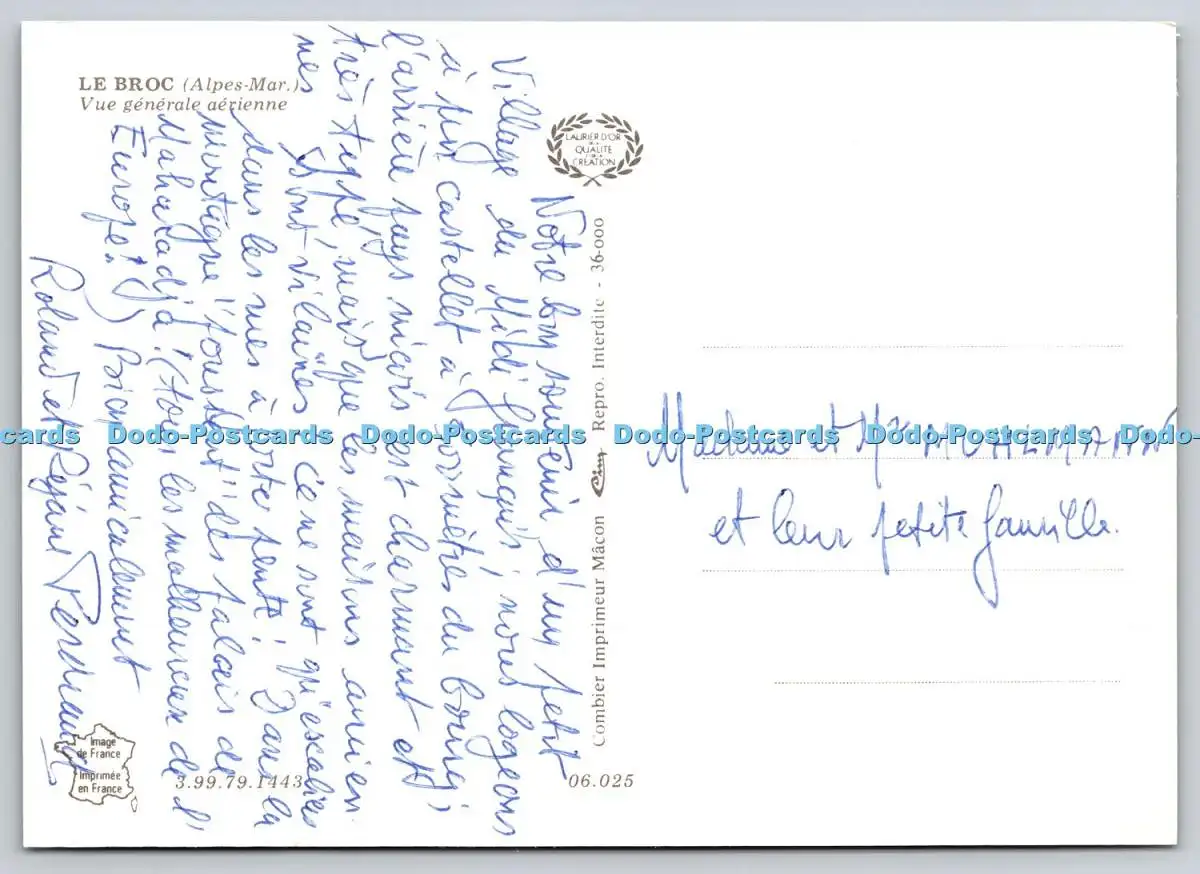 LE BROC (Alpes-Mar.)
Vue générale aérienne
Notre bon souvenir d'un petit
Village du Midi français, nous logeons
à un castellet à 2 Kilomètres du bourg;
l'arrière pays niçois est charmant et
très typé, mais que les maisons ancien
nes sont vilaines ce ne sont qu'escaliers
dans les rues à forte pente! Dans la
montagne "foussent" des palais de
Maharadja! (tous les malheureux de l'
Europe!) Bien amicalement
Roland et Réjane
LAURIER D'OR
DE LA
QUALITÉ
DE LA
CRÉATION
Combier Imprimeur Mâcon Cim Repro. Interdite - 36-000
Madame et Mr
et leur petite famille.
Image
de France
Imprimée
en France
3.99.79.1443
06.025
cards Dodo-Postcards Dodo-Postcards Dodo-Postcards Dodo-Postcards Dodo-Post